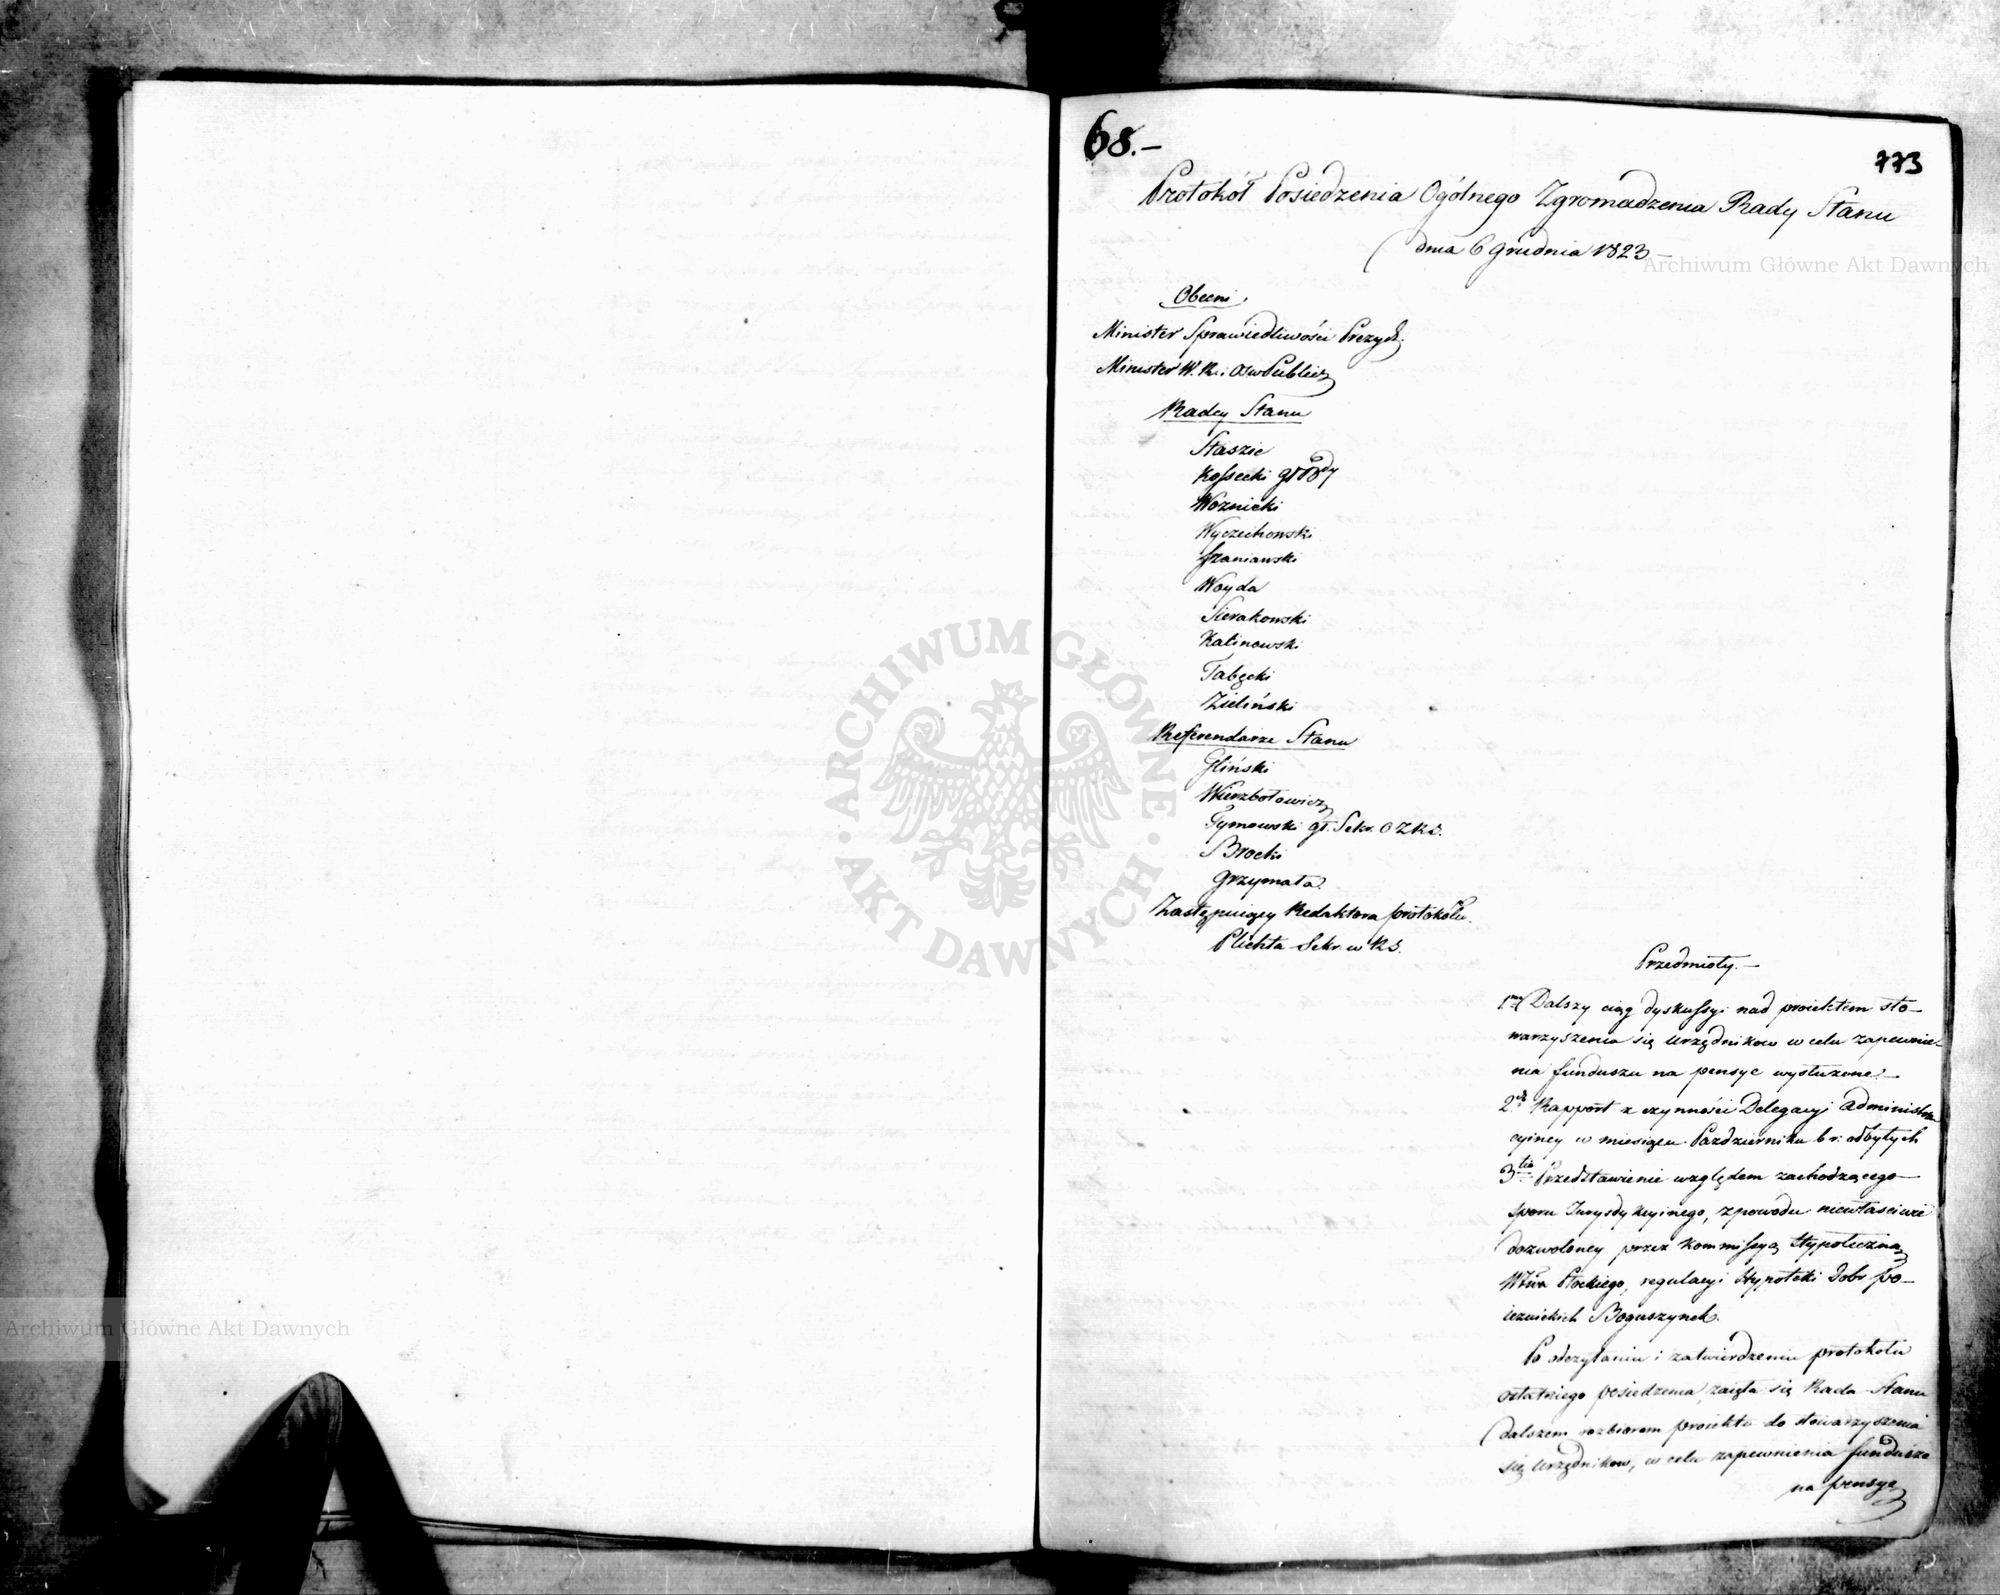 68.–
773
Protokół Posiedzenia Ogólnego Zgromadzenia Rady Stanu
dnia 6 Grudnia 1823 –
Archiwum Główne Akt Dawnych
Obecni
Minister Sprawiedliwości Prezyd:
Minister W. R. i Ośw Publicz
Radcy Stanu
Staszic
Kossecki
Woznicki
Wyczechowski
Szaniawski
Woyda
Sierakowski
Kalinowski
Tabęcki
Zieliński
Referendarze Stanu
Gliński
Wierzbołowicz
Tymowski gł. Sekr. O Z R S.
Brocki
Grzymała
Zastępuiący Redaktora protokółu.
Plichta Sekr. w R S.
Przedmioty. –
1mo Dalszy ciąg dyskussyi nad proiektem sto–
warzyszenia się Urzędników w celu zapewnie–
nia funduszu na pensye wysłużone. –
2do Rapport z czynności Delegacyi Administra
cyiney w miesiącu Październiku b r. odbytych
3tio Przedstawienie względem zachodzącego
sporu Jurysdykcyinego, z powodu niewłaściwie
dozwoloney przez Kommissyą Hypoteczną
Wtwa Płockiego, regulacyi Hypoteki Dobr po–
iezuickich Boguszynek.
Po odczytaniu i zatwierdzeniu protokołu
ostatniego posiedzenia, zaięła się Rada Stanu
dalszem rozbiorem proiektu do stowarzyszenia
się Urzędnikow, w celu zapewnienia funduszu
na pensye
ARCHIWUM GŁÓWNE AKT DAWNYCH
Archiwum Główne Akt Dawnych